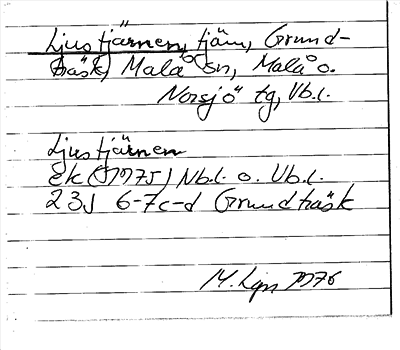 Ljustjärnen, tjärn, Grund-
träsk, Malå sn, Malå o.
Norsjö tg, Vb.l.
Ljustjärnen
Ek (1975) Nb.l. o. Vb.l.
23J 6-7c-d Grundträsk
M. Lgn 1976